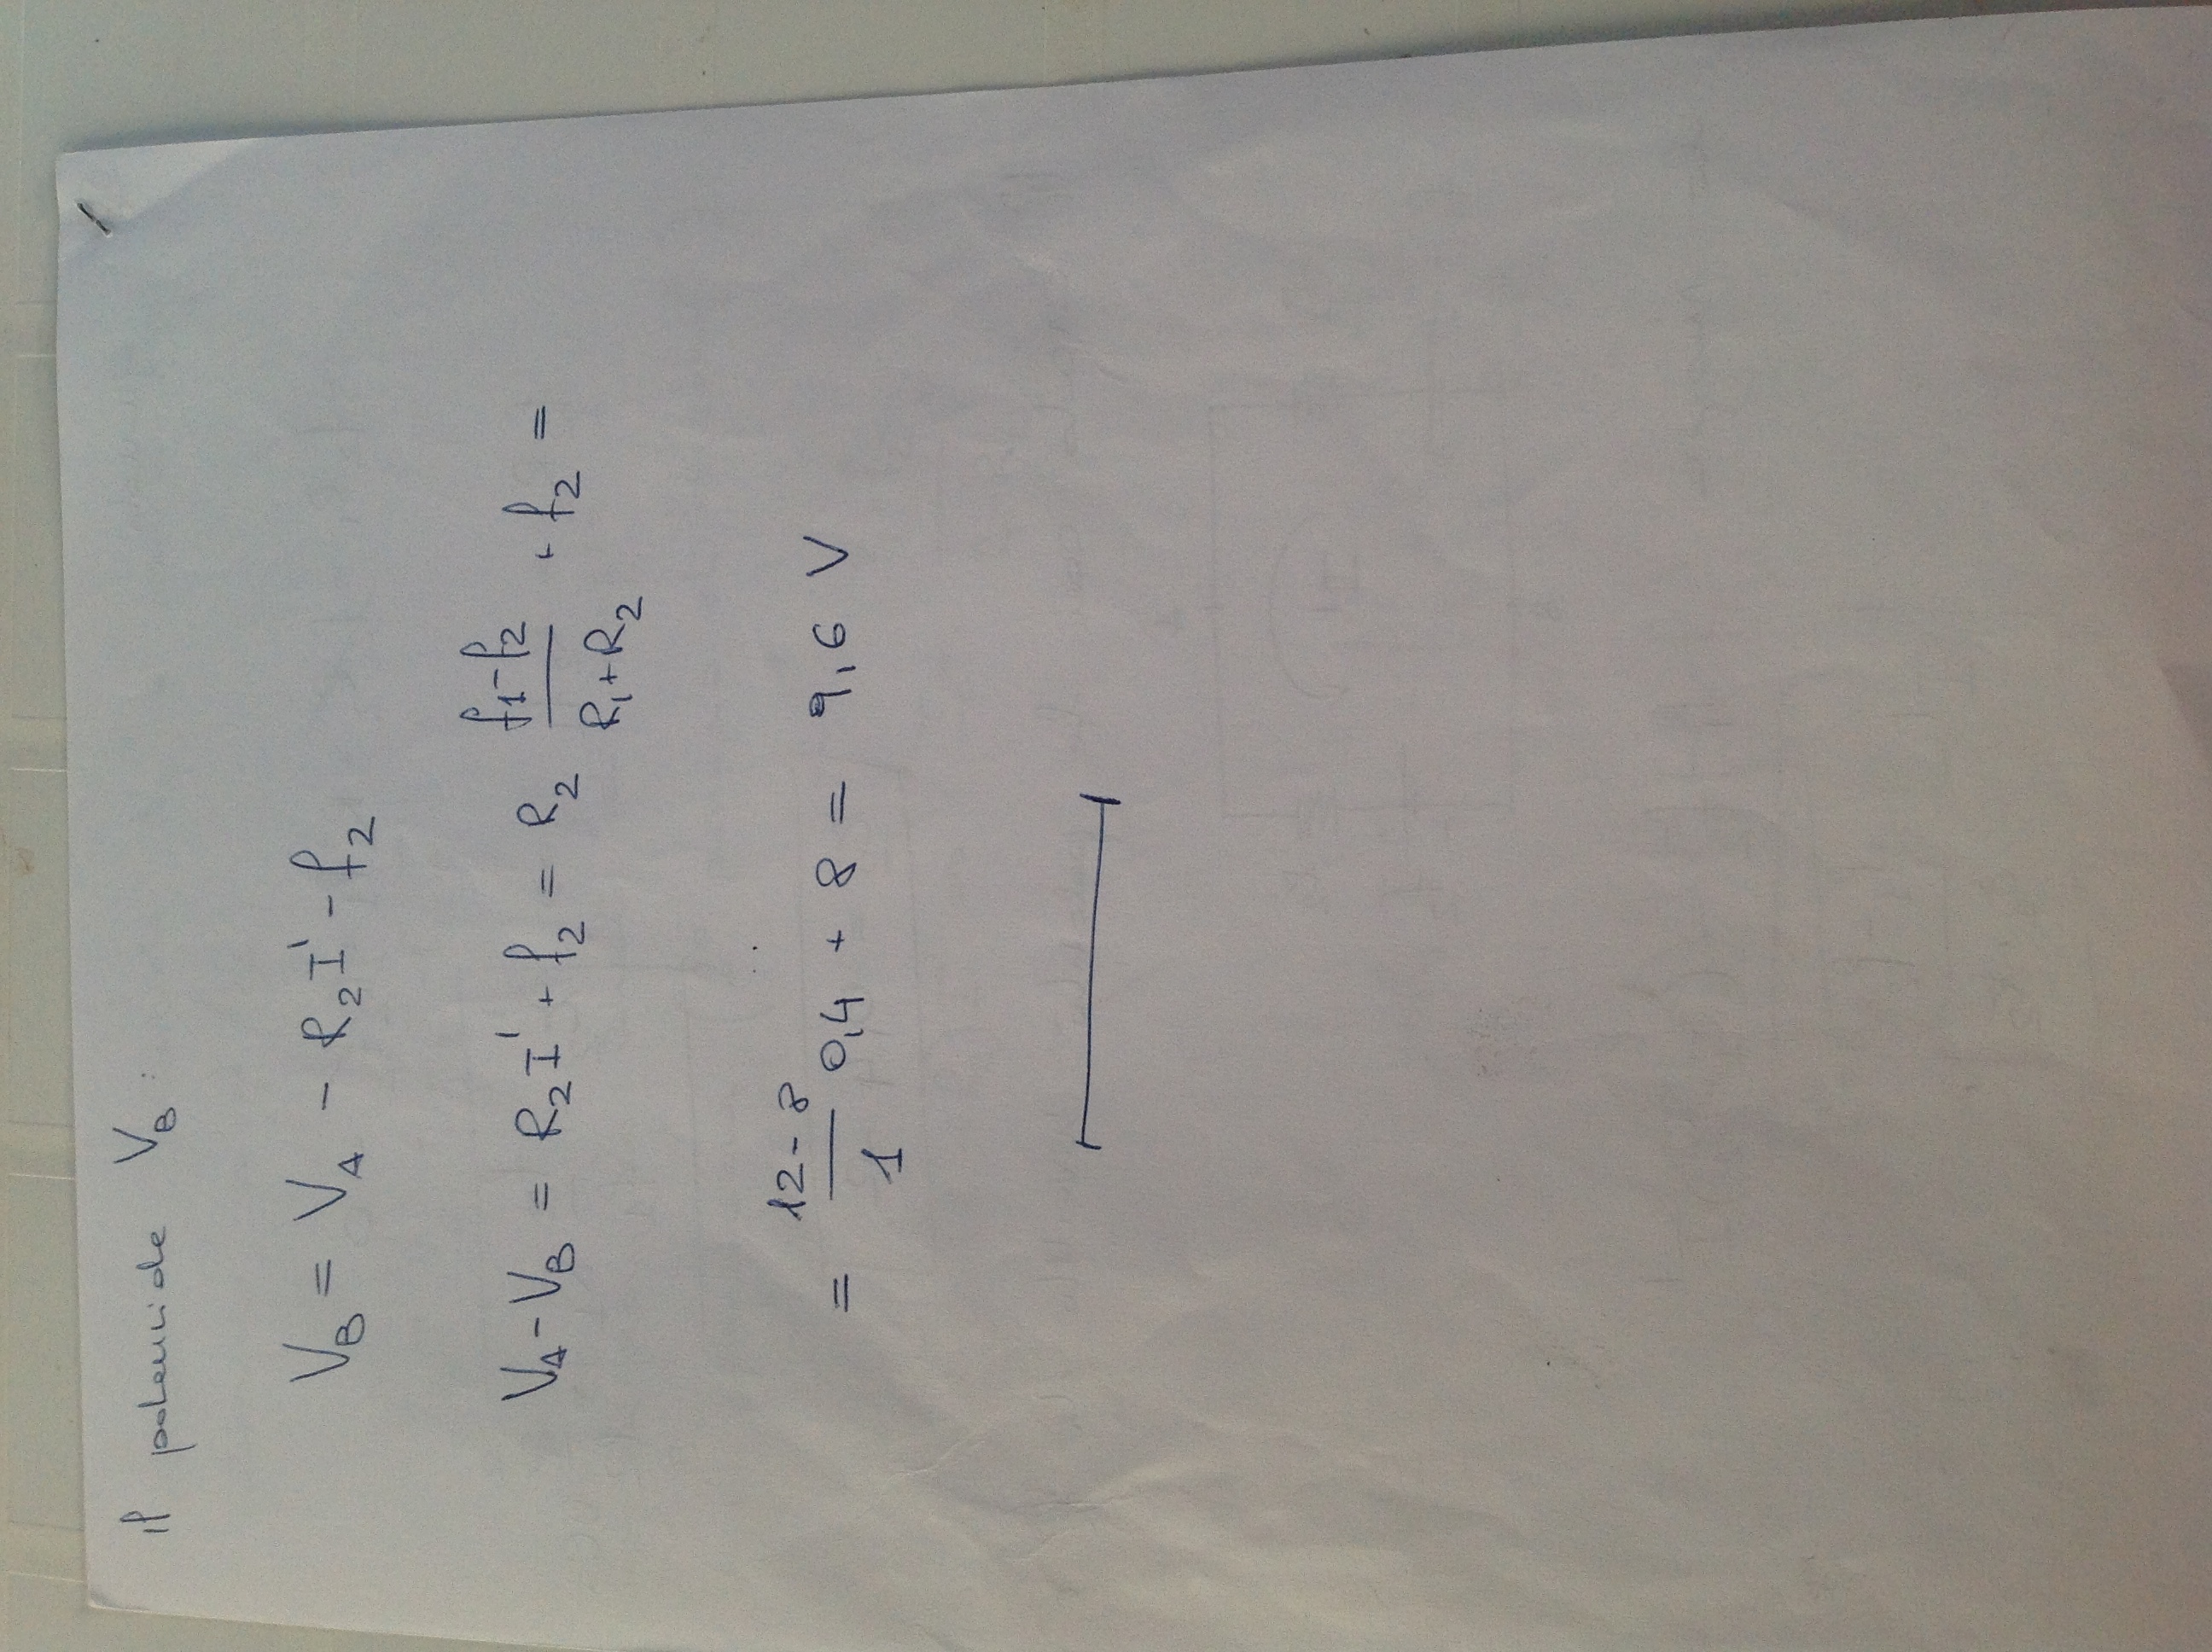 il potenziale V_B:
V_B = V_A - R_2 I' - f_2
V_A - V_B = R_2 I' + f_2 = R_2 (f_1 - f_2)/(R_1 + R_2) + f_2 =
= (12 - 8)/1 0,4 + 8 = 9,6 V